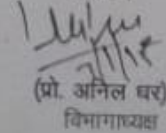 (प्रो. अनिल धर)
विभागाध्यक्ष